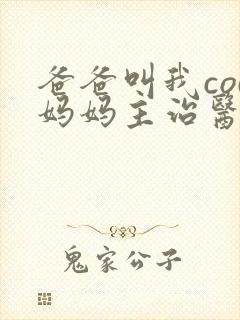 爸爸叫我co
妈妈主治醫
鬼家公子